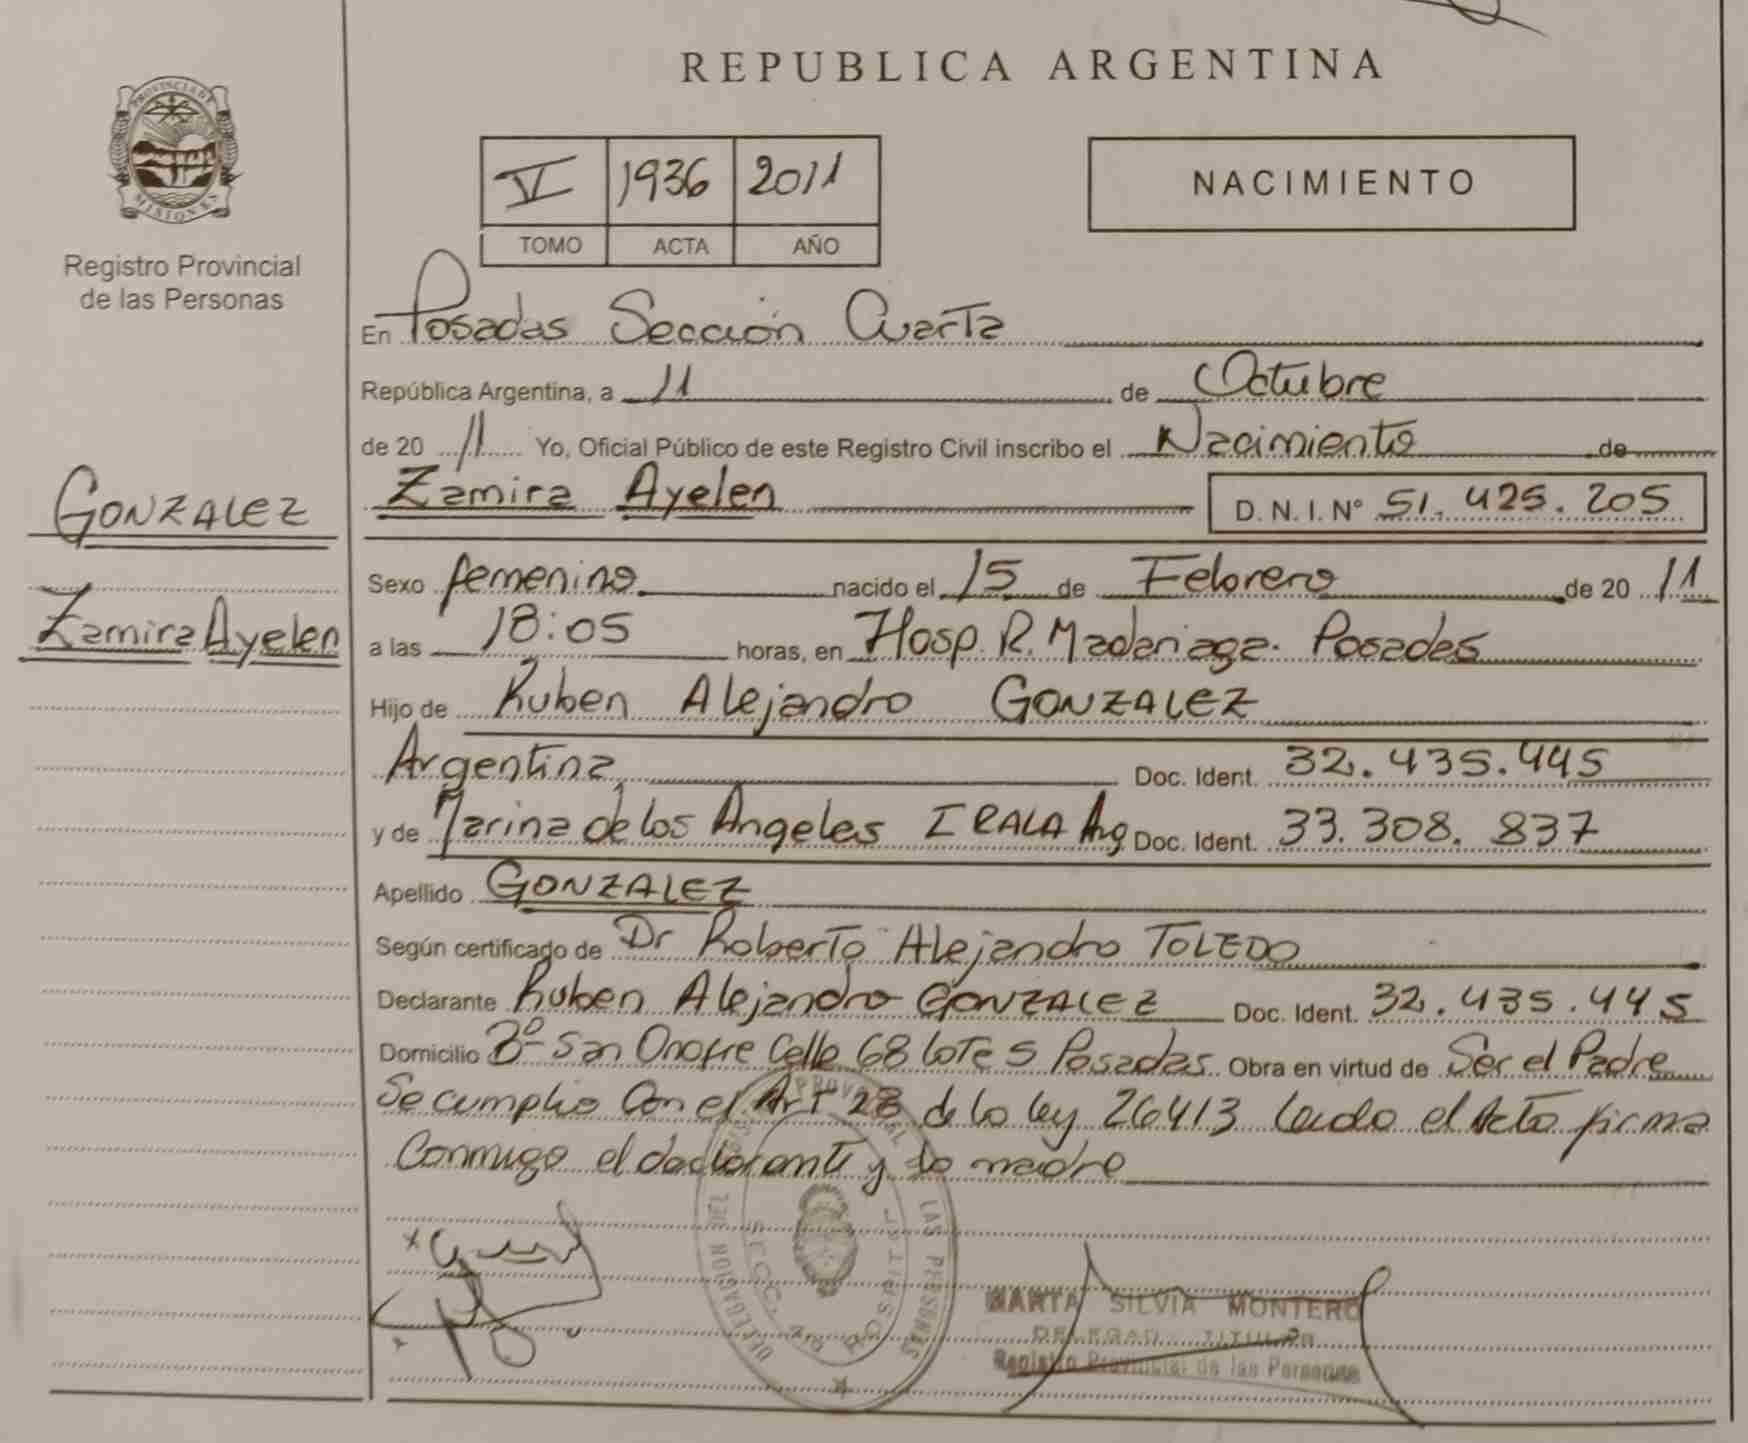 REPUBLICA ARGENTINA
PROVINCIA DE
MISIONES
Registro Provincial
de las Personas
V 1936 2011
TOMO ACTA AÑO
NACIMIENTO
GONZALEZ
Zamira Ayelen
En Posadas Sección Cuarta
República Argentina, a 11 de Octubre
de 20 11 Yo, Oficial Público de este Registro Civil inscribo el Nacimiento de
Zamira Ayelen D. N. I. Nº 51.425.205
Sexo femenino nacido el 15 de Febrero de 20 11
a las 18:05 horas, en Hosp. R. Madariaga. Posadas
Hijo de Ruben Alejandro GONZALEZ
Argentina Doc. Ident. 32.435.445
y de Marina de los Angeles IRALA Arg Doc. Ident. 33.308.837
Apellido GONZALEZ
Según certificado de Dr Roberto Alejandro TOLEDO
Declarante Ruben Alejandro GONZALEZ Doc. Ident. 32.435.445
Domicilio Bº San Onofre Calle 68 lote 5 Posadas Obra en virtud de Ser el Padre
Se cumplio Con el Art 28 de la ley 26413 leido el Acta firma
Conmigo el declarante y la madre
DELEGACION DEL PROVINCIAL LAS PERSONAS
SECC. 4a HOSPITAL
MARTA SILVIA MONTERO
DELEGADA TITULAR
Registro Provincial de las Personas